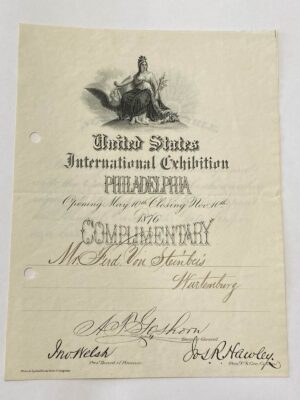 United States
International Exhibition
PHILADELPHIA
Opening May 10th Closing Nov. 10th
1876
COMPLIMENTARY
Mr. Ferd. Von Steinbeis
Wurtemburg
A. T. Goshorn
Director General
Jno Welsh
Pres' Board of Finance
Jos. R. Hawley